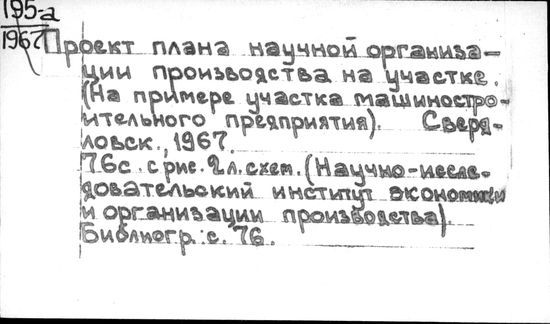 195-а
1967
Проект плана научной организа-
ции производства на участке.
(На примере участка машиностро-
ительного предприятия). Сверд-
ловск, 1967.
76с. с рис. 2л. схем. (Научно-иссле-
довательский институт экономики
и организации производства).
Библиогр.: с. 76.